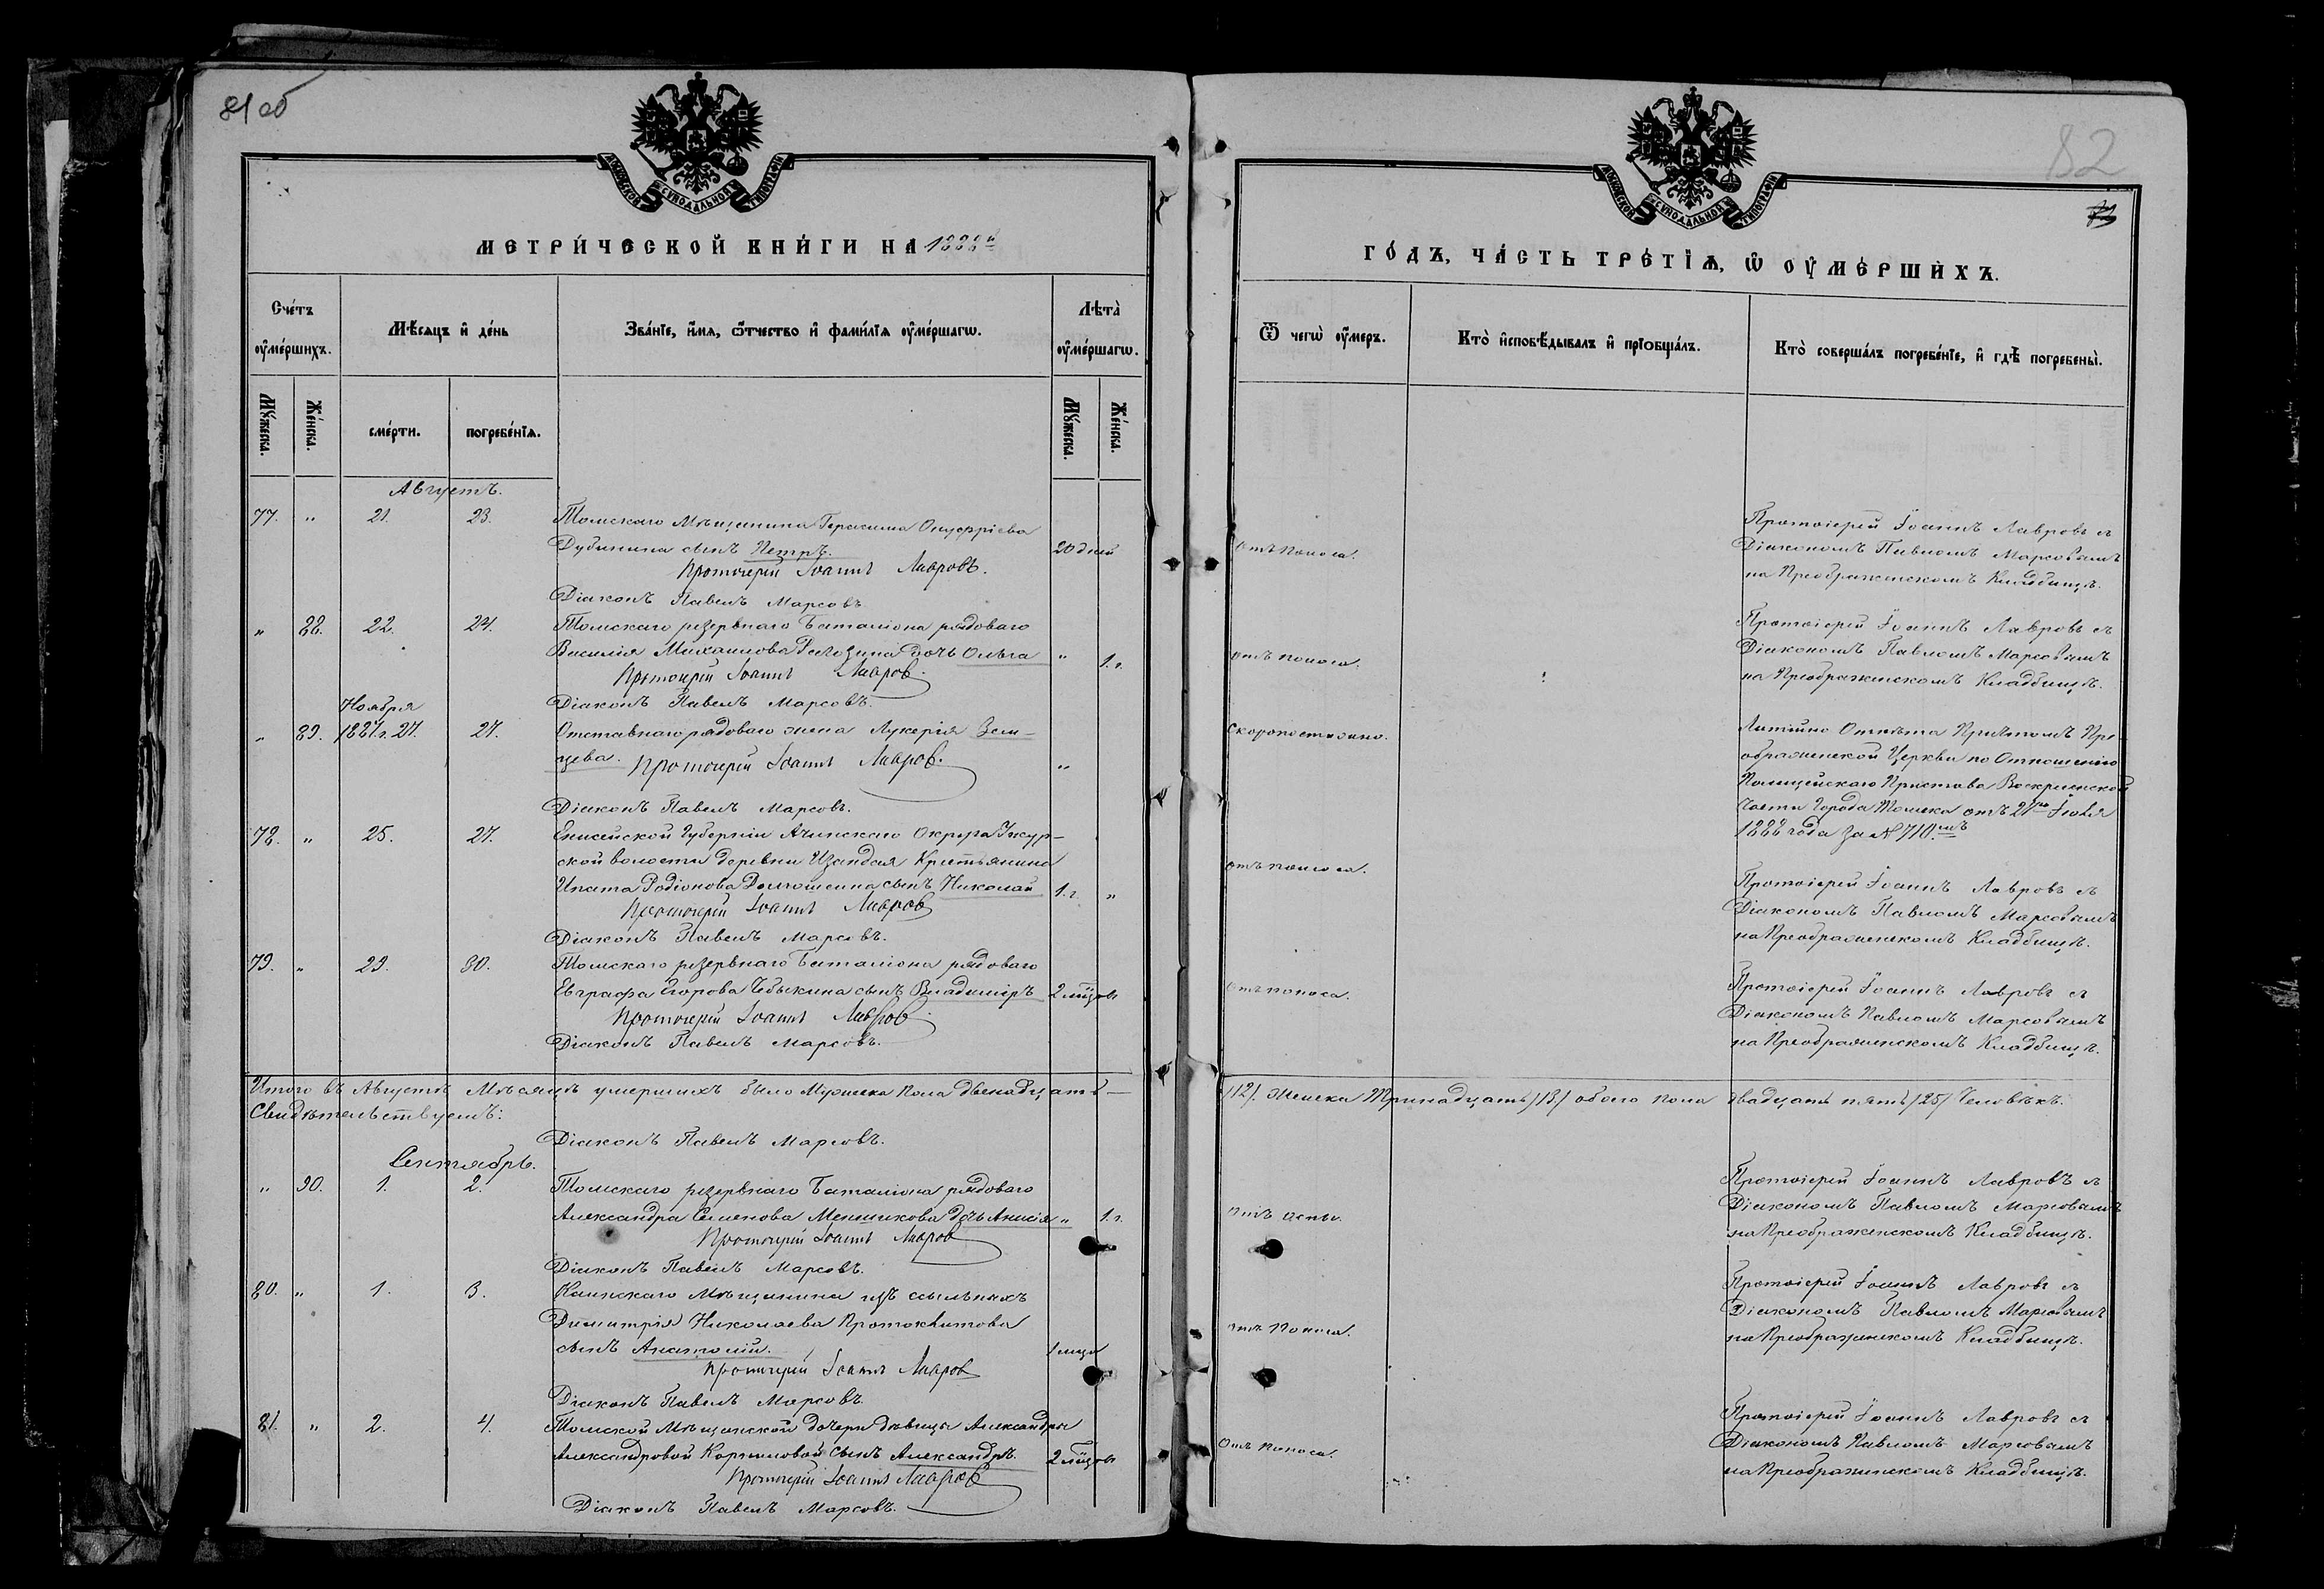 81 об
82
МОСКОВСКОЙ СУНОДАЛЬНОЙ ТИПОГРАФІИ
МОСКОВСКОЙ СУНОДАЛЬНОЙ ТИПОГРАФІИ
МЕТРИ́ЧЕСКОЙ КНИ́ГИ НА 1888й
ГО́ДЪ, ЧА́СТЬ ТРЕ́ТІѦ, Ѡ ОУМЕ́РШИХЪ.
Сче́тъ оуме́ршихъ.
Мѣ́сяцъ и де́нь
Зва́нїе, и́мя, о́тчество и фами́лїя оуме́ршагѡ.
Лѣта̀ оуме́ршагѡ.
Ѿ чегѡ̀ оу́меръ.
Кто̀ исповѣ́дывалъ и прїобща́лъ.
Кто̀ соверша́лъ погребе́нїе, и гдѣ̀ погребены̀.
Му́жеска.
Же́нска.
сме́рти.
погребе́нїя.
Му́жеска.
Же́нска.
Августъ.
77. " 21. 23. Томскаго Мѣщанина Герасима Онуфріева
Дубинина сынъ Петръ. 20 дней
Протоіерей Іоаннъ Лавровъ.
Діаконъ Павелъ Марсовъ
отъ поноса.
Протоіерей Іоаннъ Лавровъ съ
Діакономъ Павломъ Марсовымъ
на Преображенскомъ Кладбищѣ.
" 88. 22. 24. Томскаго резервнаго Баталіона рядоваго
Василія Михаилова дочь Ольга " 1. г.
Протоіерей Іоаннъ Лавров.
Діаконъ Павелъ Марсовъ.
отъ поноса.
Протоіерей Іоаннъ Лавровъ съ
Діакономъ Павломъ Марсовымъ
на Преображенскомъ Кладбищѣ.
Ноября
" 89. 1887 г. 27. 27. Отставнаго рядоваго жена Лукерія Зем-
цева. Протоіерей Іоаннъ Лавров. "
Діаконъ Павелъ Марсовъ.
Скоропостижно.
Литійно Отпѣта Причтомъ Пре-
ображенской Церкви по Отношенію
Полицейскаго Пристава Воскресенской
Части Города Томска отъ 21го Іюля
1888 года за № 710.мъ
78. " 25. 27. Енисейской Губерніи Ачинскаго Округа Ужур-
ской волости деревни Изандая Крестьянина
Ипата Родіонова сынъ Николай 1. г. "
Протоіерей Іоаннъ Лавров
Діаконъ Павелъ Марсовъ.
отъ поноса.
Протоіерей Іоаннъ Лавровъ съ
Діакономъ Павломъ Марсовымъ
на Преображенскомъ Кладбищѣ.
79. " 29. 30. Томскаго резервнаго Баталіона рядоваго
Евграфа Егорова Чебыкина сынъ Владиміръ 2 мѣсцовъ
Протоіерей Іоаннъ Лавров
Діаконъ Павелъ Марсовъ.
отъ поноса.
Протоіерей Іоаннъ Лавровъ съ
Діакономъ Павломъ Марсовымъ
на Преображенскомъ Кладбищѣ.
Итого въ Августѣ Мѣсяцѣ умершихъ было Мужеска Пола двенадцать —
/12/. Женска Тринадцать /13/ обоего пола двадцать пять /25/ Человѣкъ.
Свидѣтельствуемъ:
Діаконъ Павелъ Марсовъ.
Сентябрь.
" 90. 1. 2. Томскаго резервнаго Баталіона рядоваго
Александра Семенова Меншикова дочь Анисія " 1. г.
Протоіерей Іоаннъ Лавров
Діаконъ Павелъ Марсовъ.
отъ оспы.
Протоіерей Іоаннъ Лавровъ съ
Діакономъ Павломъ Марсовымъ
на Преображенскомъ Кладбищѣ.
80. " 1. 3. Каинскаго Мѣщанина изъ ссыльныхъ
Димитрія Николаева
сынъ Анатолій. 1 мцъ
Протоіерей Іоаннъ Лавров
Діаконъ Павелъ Марсовъ.
отъ поноса.
Протоіерей Іоаннъ Лавровъ съ
Діакономъ Павломъ Марсовымъ
на Преображенскомъ Кладбищѣ.
81. " 2. 4. Томской Мѣщанской дочери дѣвицы Александры
Александровой Корниловой сынъ Александръ. 2 мѣсцовъ
Протоіерей Іоаннъ Лавров
Діаконъ Павелъ Марсовъ.
Отъ поноса.
Протоіерей Іоаннъ Лавровъ съ
Діакономъ Павломъ Марсовымъ
на Преображенскомъ Кладбищѣ.